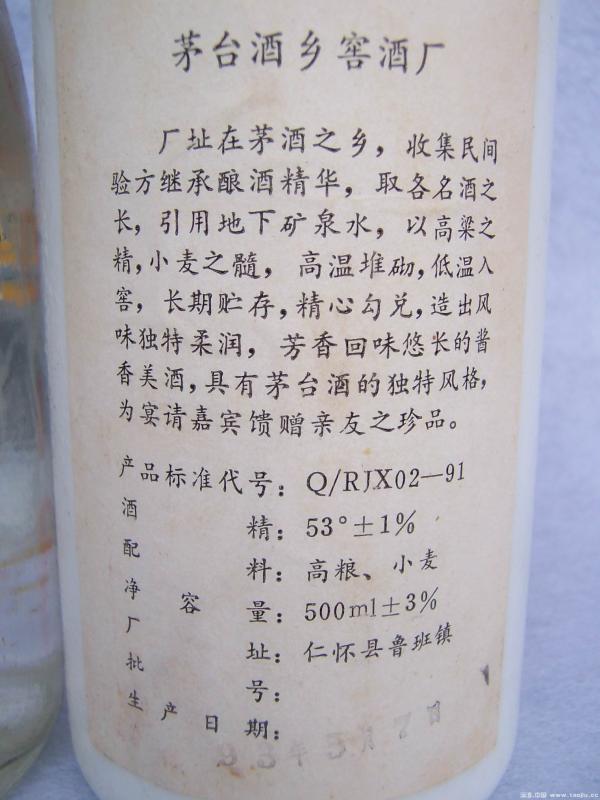 茅台酒乡窖酒厂
厂址在茅酒之乡，收集民间
验方继承酿酒精华，取各名酒之
长，引用地下矿泉水，以高梁之
精，小麦之髓，高温堆砌，低温入
窖，长期贮存，精心勾兑，造出风
味独特柔润，芳香回味悠长的酱
香美酒，具有茅台酒的独特风格，
为宴请嘉宾馈赠亲友之珍品。
产品标准代号：Q/RJX02—91
酒精：53°±1%
配料：高粮、小麦
净容量：500ml±3%
厂址：仁怀县鲁班镇
批号：
生产日期：